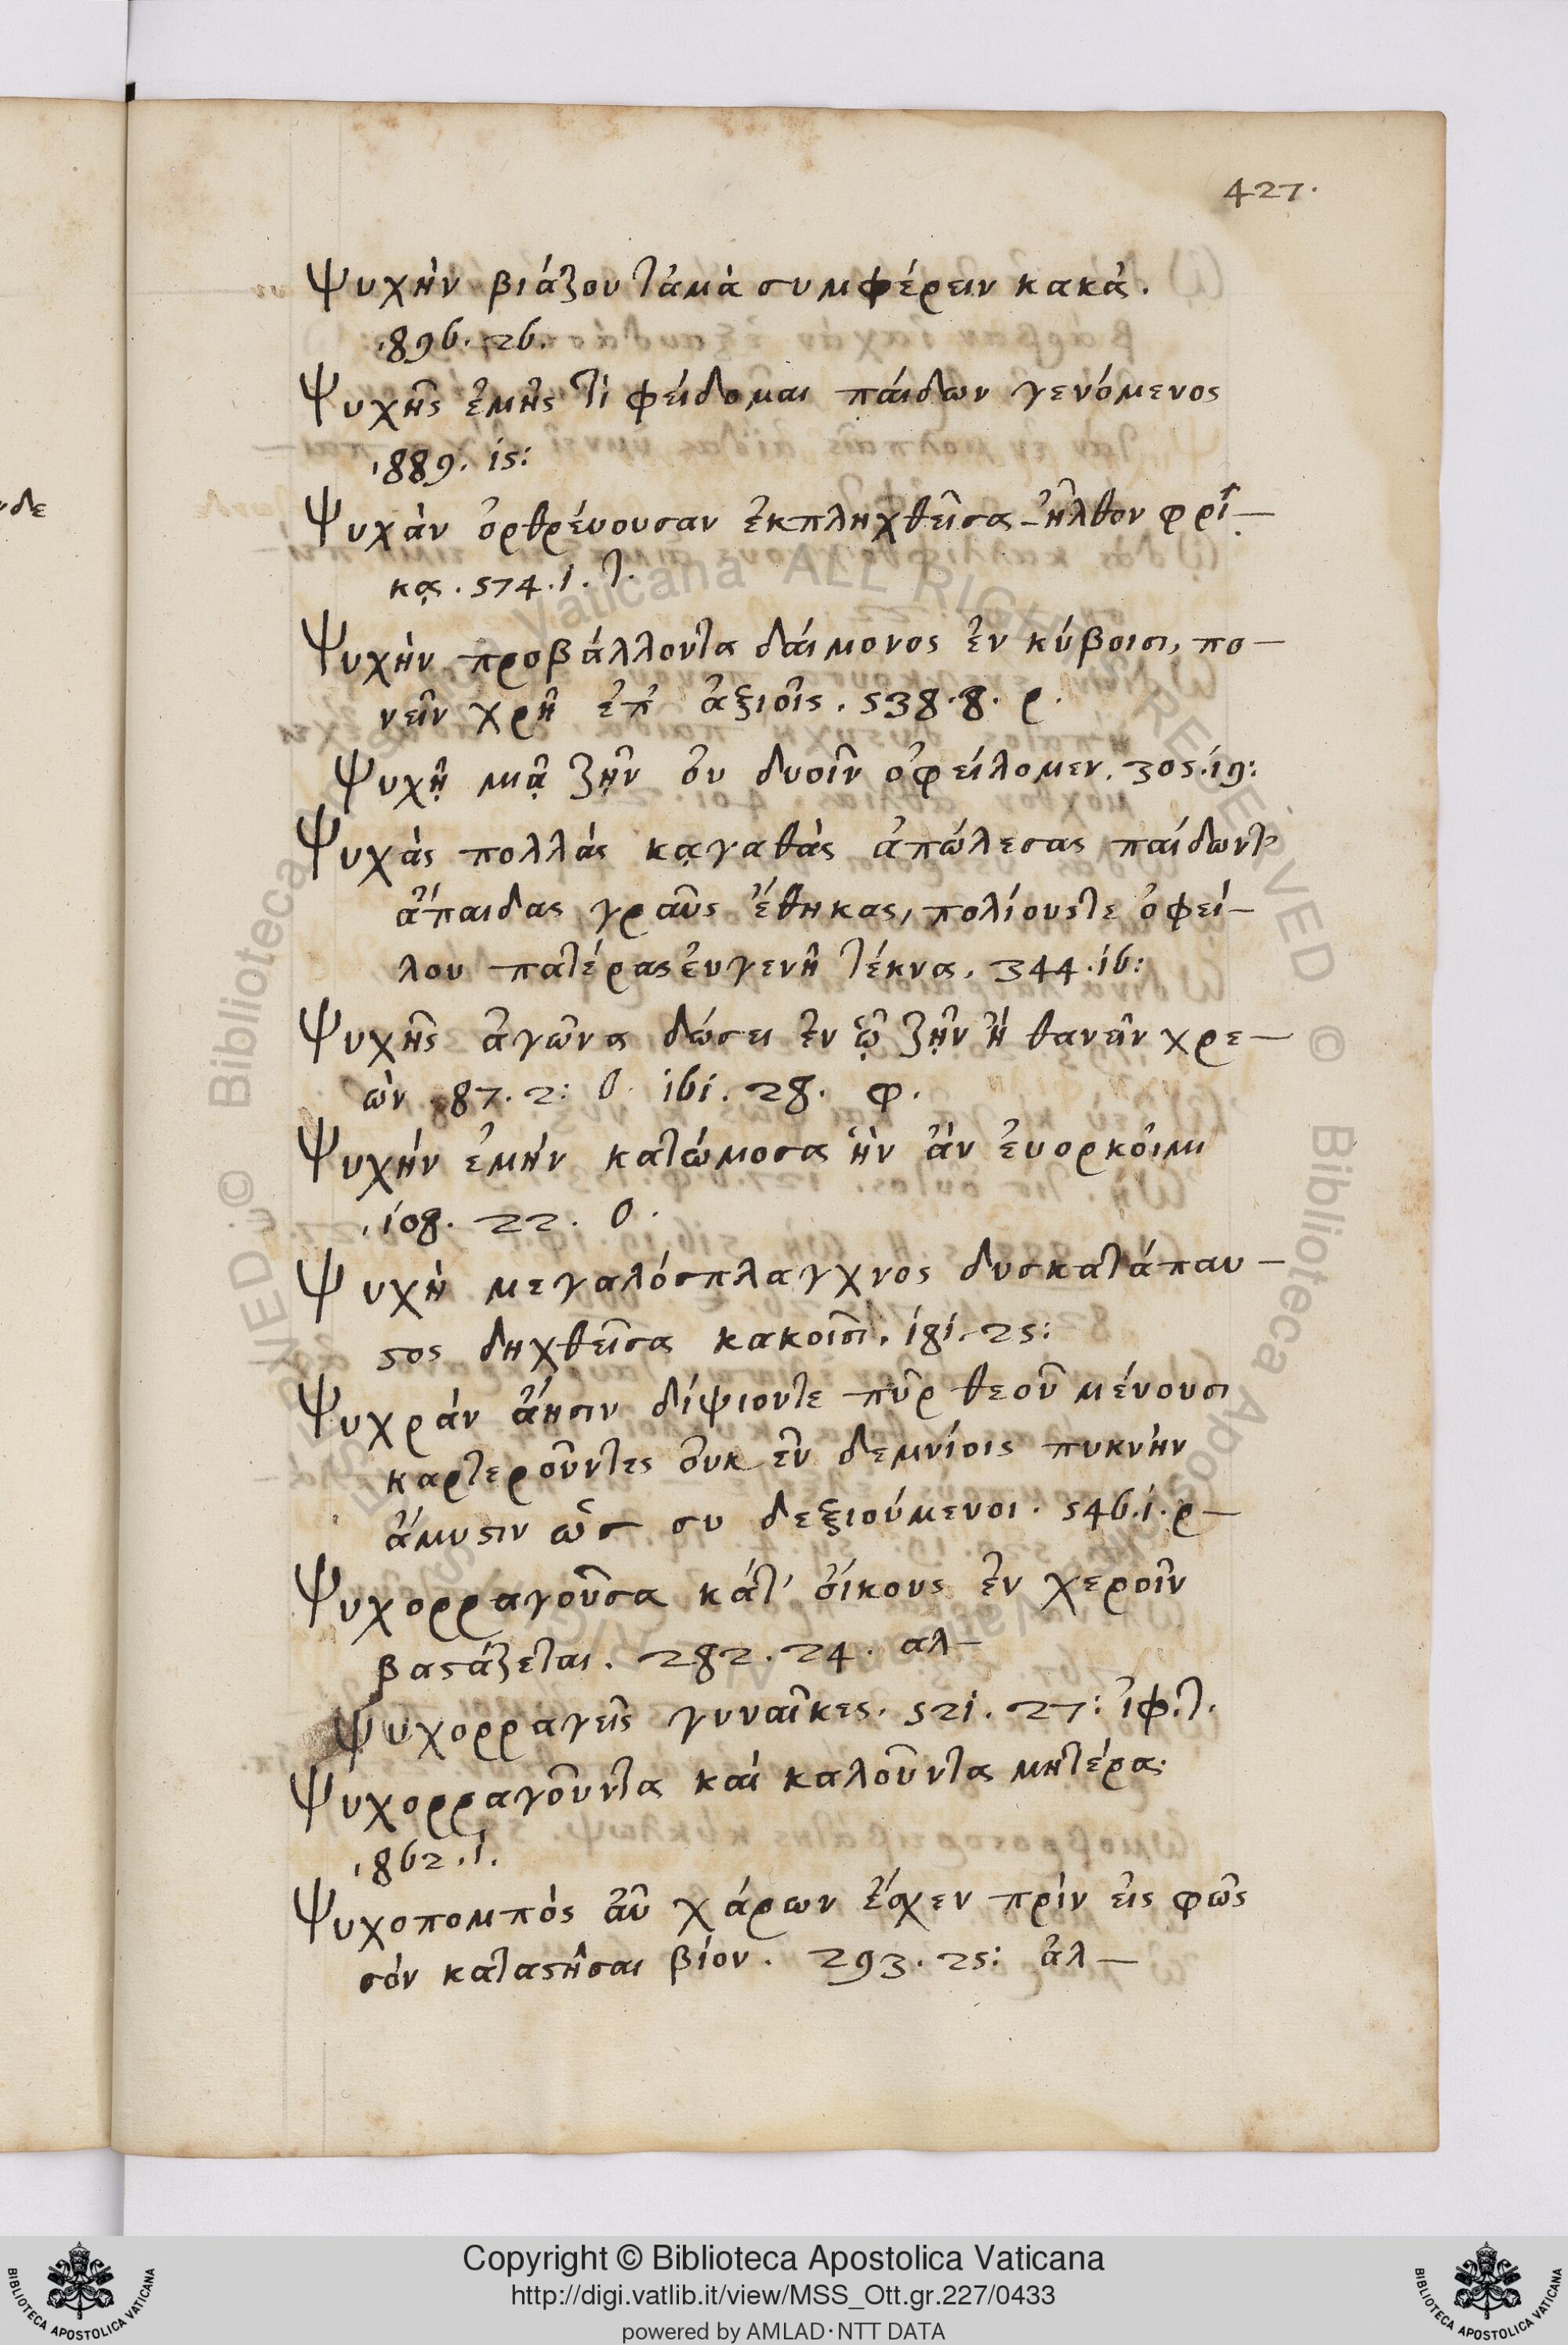 427.
Ψυχὴν βιάζου τἀμὰ συμφέρειν κακά.
,896. 26.
Ψυχῆς ἐμῆς τί φείδομαι πάιδων γενόμενος
,889. 15:
Ψυχὰν ὀρθρέυουσαν ἐκπληχθεῖσα ἦλθον φρί–
κᾳ. 574. 1. τ.
Ψυχὴν προβάλλοντα δάιμονος ἐν κύβοισι, πο–
νεῖν χρὴ ἐπ' ἀξιοῖς. 538. 8. ρ.
Ψυχῇ μιᾷ ζῇν ὀυ δυοῖν ὀφείλομεν. 305. 19:
Ψυχὰς πολλὰς κᾳγαθὰς ἀπώλεσας παίδωντ'
ἄπαιδας γραῦς ἔθηκας, πολίουςτε ὀφεί–
λου πατέρας ἐυγενῆ τέκνα. 344. 16:
Ψυχῆς ἀγῶνα δώσει ἐν ᾧ ζῇν ἢ θανεῖν χρε–
ὼν 87. 2: ο. 161. 28. φ.
Ψυχήν ἐμήν κατώμοσα ἣν ἂν ἐυορκοῖμι
,108. 22. ο.
Ψυχὴ μεγαλόσπλαγχνος δυσκατάπαυ–
στος δηχθεῖσα κακοῖσι. 181. 25:
Ψυχρὰν ἄησιν δίψιοντε πῦρ θεοῦ μένουσι
καρτεροῦντες ὀυκ ἐν δεμνίοις πυκνὴν
ἄμυστιν ὡς συ δεξιούμενοι. 546. 1. ρ–
Ψυχορραγοῦσα κάτ' ὄικους ἐν χεροῖν
βαστάζεται. 282. 24. αλ–
Ψυχορραγεῖς γυναῖκες. 521. 27: ἰφ. τ.
Ψυχορραγοῦντα καὶ καλοῦντα μητέρα.
,862. 1.
Ψυχοπομπὸς ἀῦ χάρων ἔσχεν πρὶν ἐις φῶς
σόν καταστῆσαι βίον. 293. 25: ἀλ–
Copyright © Biblioteca Apostolica Vaticana
http://digi.vatlib.it/view/MSS_Ott.gr.227/0433
powered by AMLAD·NTT DATA